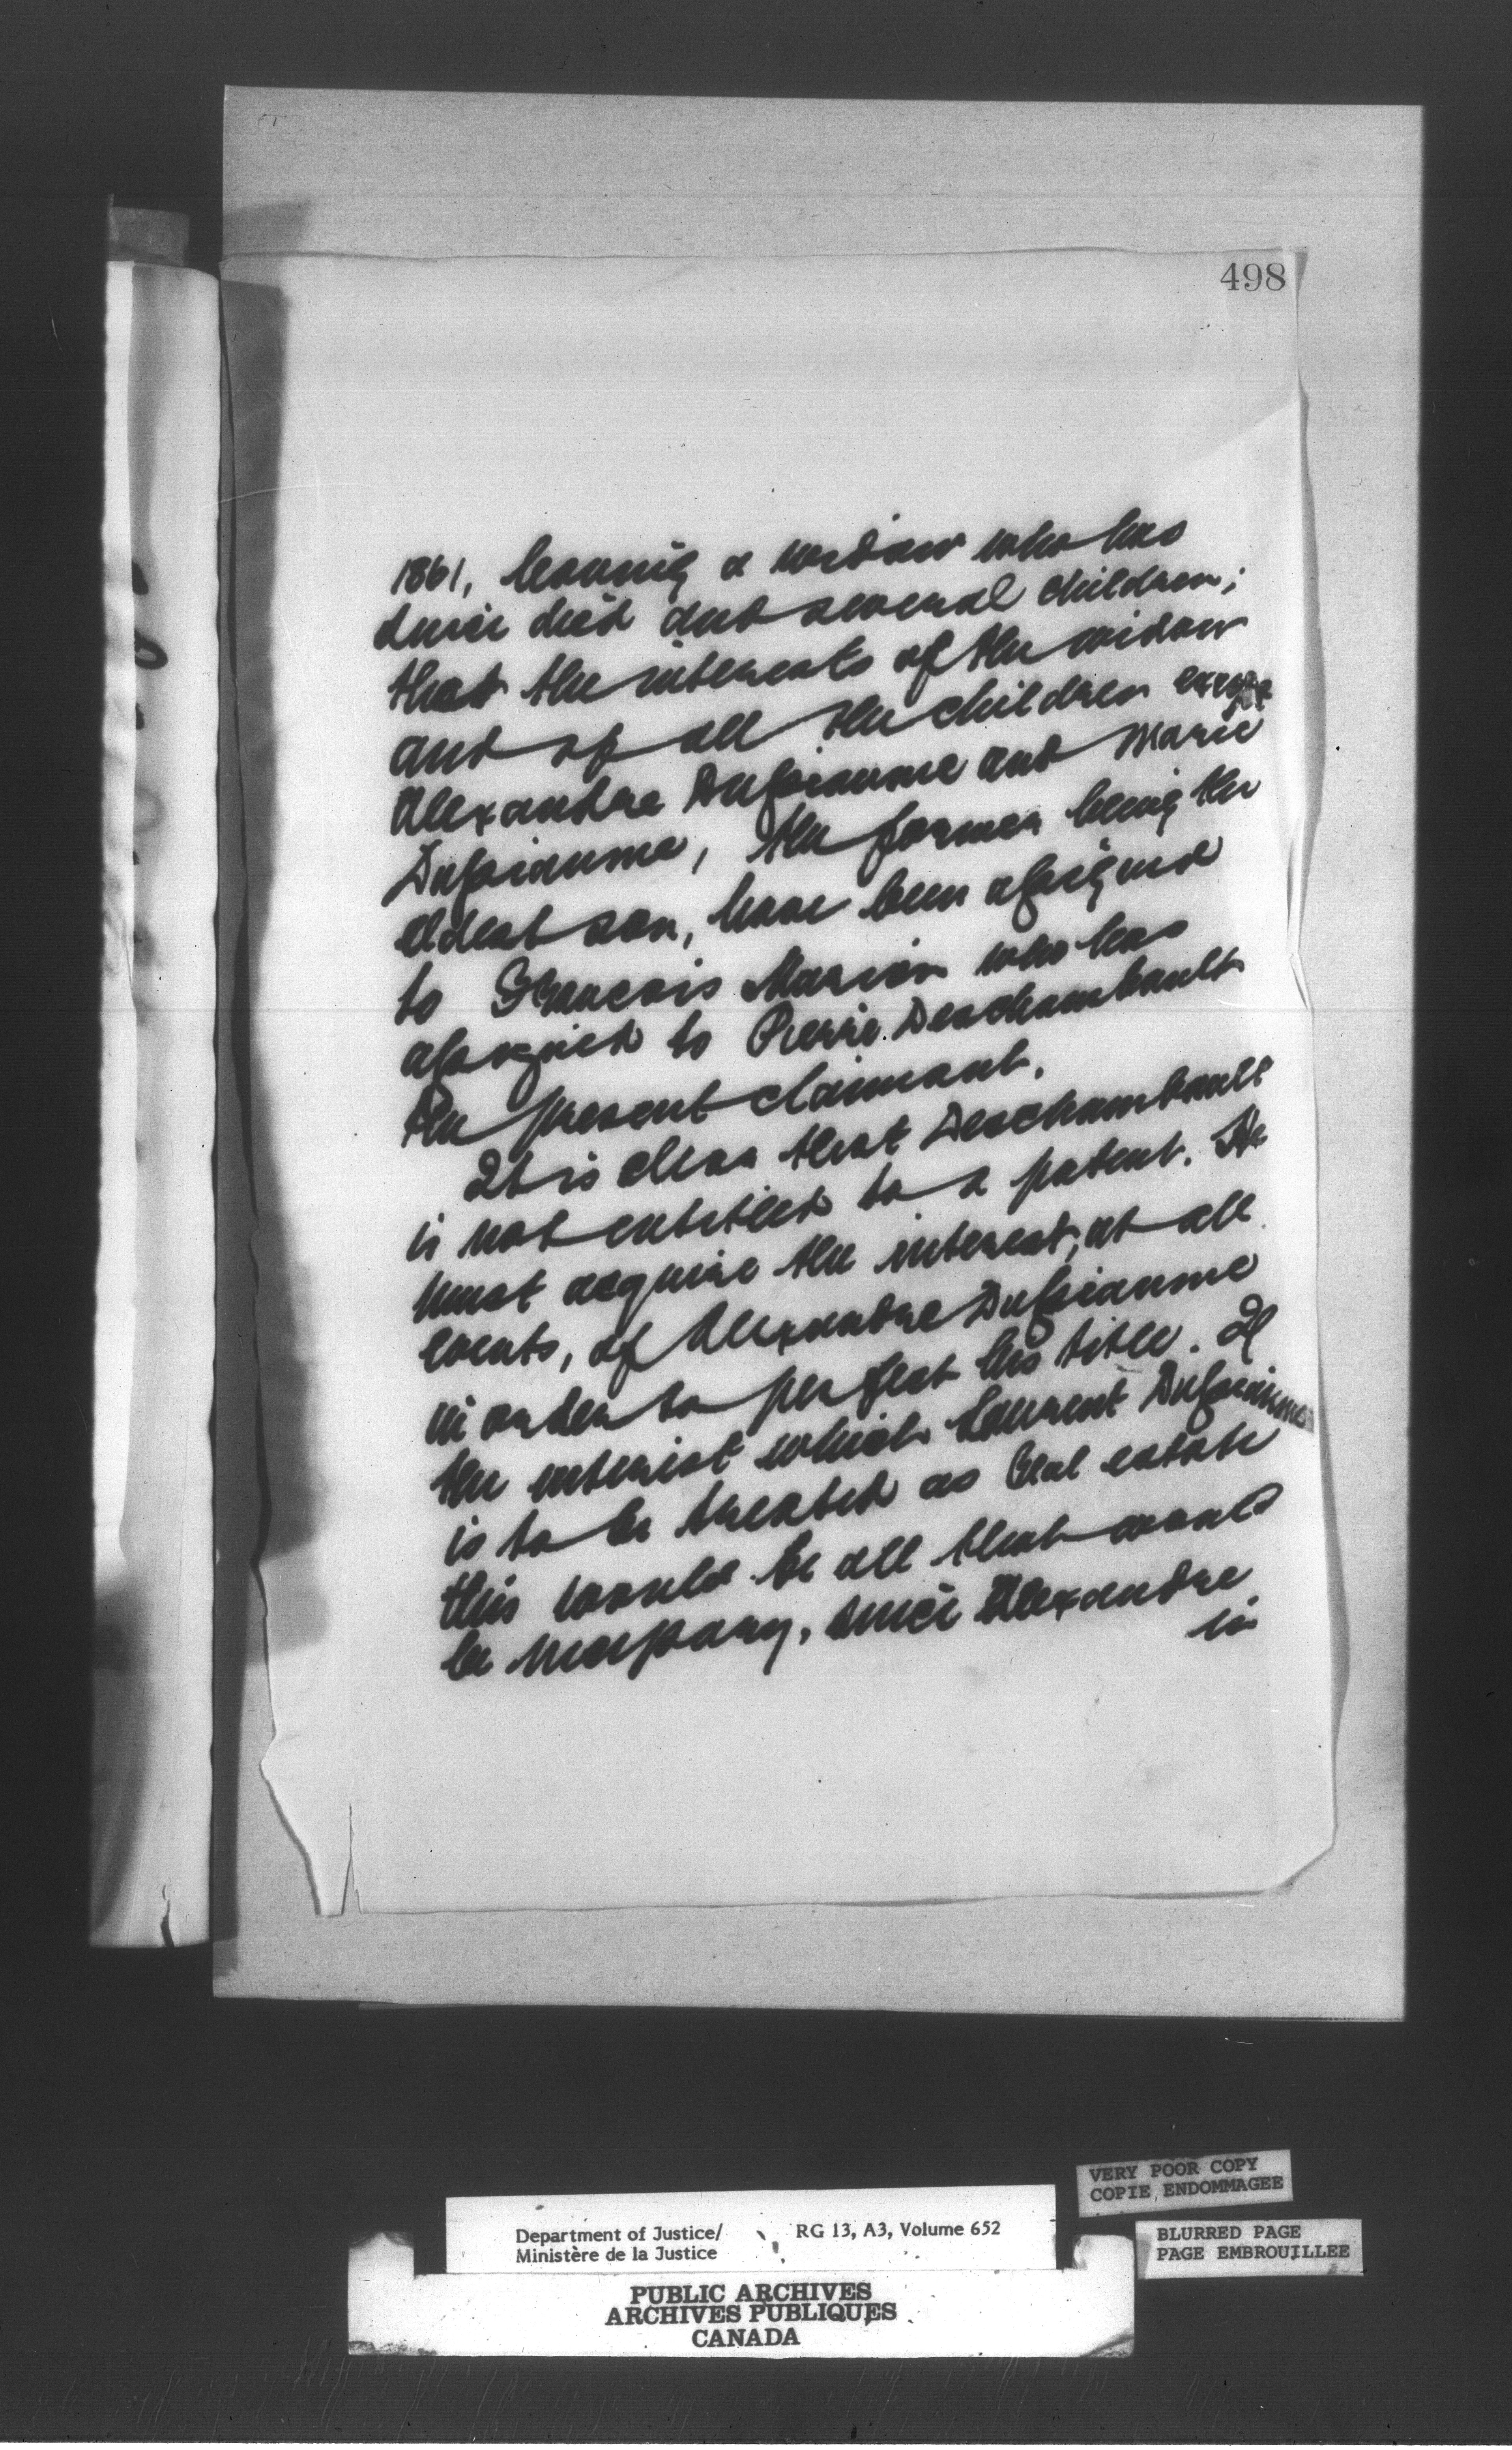 498
1861, leaving a widow who has
since died and several children;
that the interests of the widow
and of all the children except
Alexandre Dussiaume and Marie
Dussiaume, the former being the
eldest son, have been assigned
to Francois Marion who has
assigned to Pierre Deschambault
the present claimant.
It is clear that Deschambault
is not entitled to a patent. He
must acquire the interest, at all
events, of Alexandre Dussiaume
in order to perfect his title. If
the interest which Laurent Dussiaume
is to be treated as real estate
this would be all that would
be necessary, since Alexandre
is
VERY POOR COPY
COPIE ENDOMMAGEE
Department of Justice/ RG 13, A3, Volume 652
Ministère de la Justice
BLURRED PAGE
PAGE EMBROUILLEE
PUBLIC ARCHIVES
ARCHIVES PUBLIQUES
CANADA